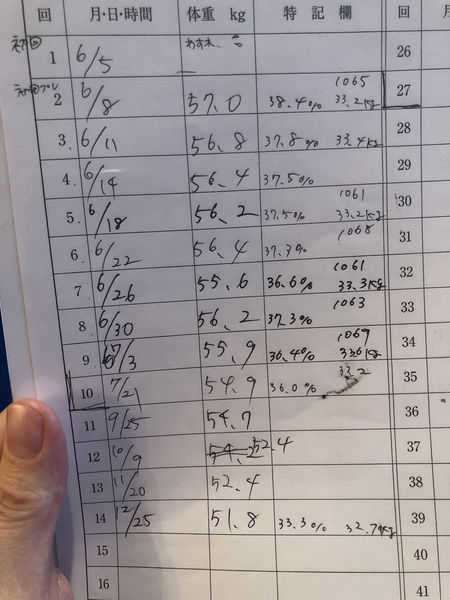 回 月・日・時間 体重 kg 特記欄 回
初回 1 6/5 わすれ 26
2 6/8 57.0 38.4% 1065 33.2kg 27
3 6/11 56.8 37.8% 33.4kg 28
4 6/14 56.4 37.5% 29
5 6/18 56.2 37.5% 1061 33.2kg 30
6 6/22 56.4 37.3% 1068 31
7 6/26 55.6 36.6% 1061 33.3kg 32
8 6/30 56.2 37.3% 1063 33
9 7/3 55.9 36.4% 1069 33.6kg 34
10 7/21 54.9 36.0% 33.2 35
11 9/25 54.7 36
12 10/9 52.4 37
13 11/20 52.4 38
14 12/25 51.8 33.3% 32.79kg 39
15 40
16 41